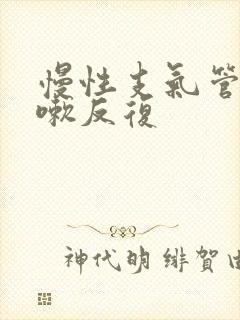 慢性支氣管
嗽反復
神代明 緋賀由